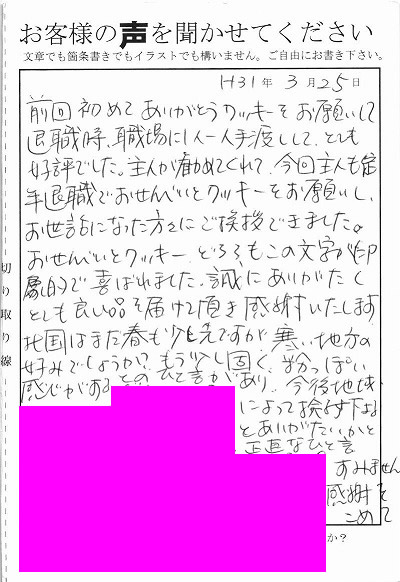 お客様の声を聞かせてください
文章でも箇条書きでもイラストでも構いません。ご自由にお書き下さい。
H31年 3月25日
前回 初めて ありがとうクッキーをお願いして
退職時、職場に1人一人手渡しして、とても
好評でした。主人が勧めてくれて、今回主人も定
年退職でおせんべいとクッキーをお願いし、
お世話になった方々にご挨拶できました。
おせんべいとクッキー、どちらもこの文字が印
象的で喜ばれました。誠にありがたく
とても良い品を届けて頂き感謝いたします
北国はまだ春も少し先ですが 寒い地方の
好みでしょうか?もう少し固く、粉っぽい
感じがするとのひと言があり、今後地域
によって検討下さる
とありがたいかと
正直なひと言
すみません
感謝を
こめて
か?
切り取り線